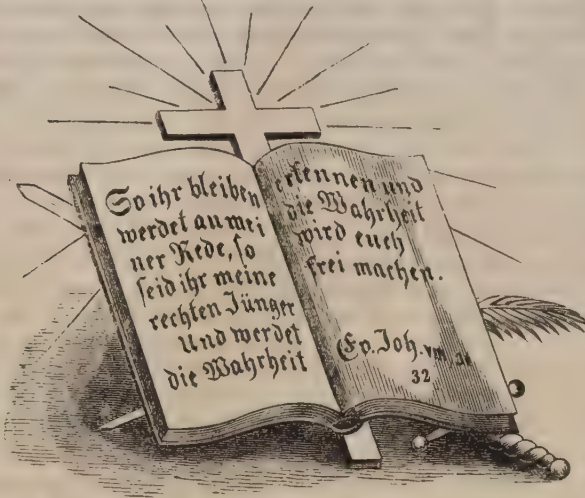 So ihr bleiben
werdet an mei
ner Rede, so
seid ihr meine
rechten Jünger
Und werdet
die Wahrheit
erkennen und
die Wahrheit
wird euch
frei machen.
Ev. Joh. VIII. 31
32.